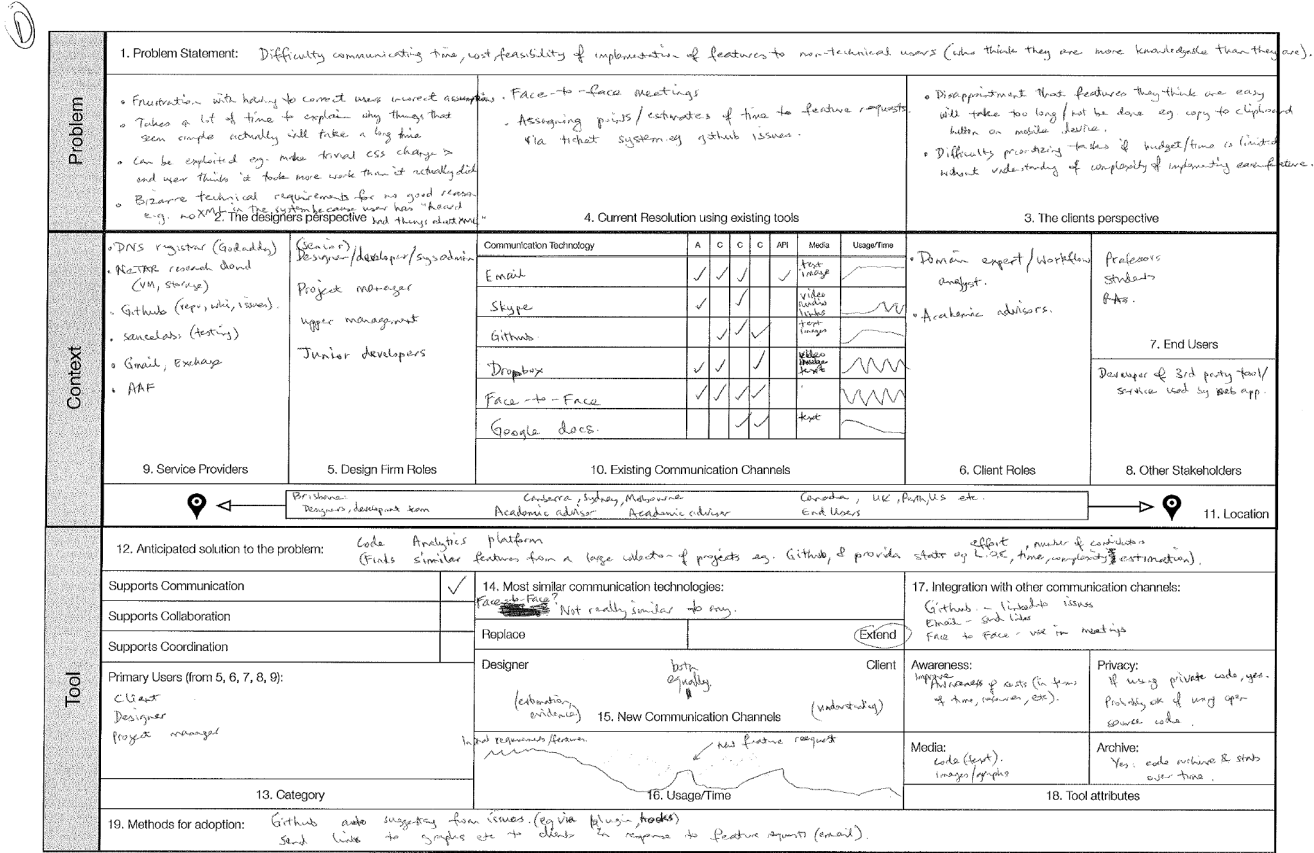 D
Problem
1. Problem Statement: Difficulty communicating time, cost feasibility of implementation of features to non-technical users (who think they are more knowledgeable than they are).
• Frustration with having to correct users incorrect assumptions
• Takes a lot of time to explain why things that
seem simple actually will take a long time
• can be exploited eg. make trivial css change
and user thinks it took more work than it actually did
• Bizarre technical requirements for no good reason
e.g. no XML in the system because user has "heard
bad things about XML"
2. The designers perspective
• Face-to-face meetings
• Assigning points/estimates of time to feature requests
via ticket system. eg github issues.
4. Current Resolution using existing tools
• Disappointment that features they think are easy
will take too long/not be done eg. copy to clipboard
button on mobile device.
• Difficulty prioritizing tasks if budget/time is limited
without understanding of complexity of implementing each feature.
3. The clients perspective
Context
• DNS registrar (Godaddy)
• NeCTAR research cloud
(VM, storage)
• Github (repo, wiki, issues).
• saucelabs (testing)
• Gmail, Exchange
• AAF
9. Service Providers
(senior)
Designer/developer/sysadmin
Project manager
upper management
Junior developers
5. Design Firm Roles
Communication Technology A C C C API Media Usage/Time
Email ✓ ✓ ✓ ✓ text image
Skype ✓ ✓ video audio links
Github ✓ ✓ ✓ text images
Dropbox ✓ ✓ ✓ video image text
Face-to-Face ✓ ✓ ✓ ✓
Google docs. ✓ ✓ text
10. Existing Communication Channels
• Domain expert/workflow
analyst.
• Academic advisors.
6. Client Roles
Professors
Students
RAs.
7. End Users
Developer of 3rd party tool/
service used by web app.
8. Other Stakeholders
Brisbane: Canberra, Sydney, Melbourne Canada, UK, Perth, US etc.
Designers, development team Academic advisor Academic advisor End Users
11. Location
Tool
12. Anticipated solution to the problem: Code Analytics platform
(Finds similar features from a large collection of projects eg. Github, & provide stats eg L.O.C, time, complexity & estimation).
effort, number of contributors
Supports Communication ✓
Supports Collaboration
Supports Coordination
Primary Users (from 5, 6, 7, 8, 9):
Client
Designer
Project manager
13. Category
14. Most similar communication technologies:
Face-to-Face?
Not really similar to any.
Replace Extend
Designer both Client
equally
(estimation, evidence) (understanding)
15. New Communication Channels
Initial requirements/features
new feature request
16. Usage/Time
17. Integration with other communication channels:
Github - linked to issues
Email - send links
Face to Face - use in meetings
Awareness:
Improve
Awareness of costs (in terms
of time, resources, etc).
Privacy:
If using private code, yes.
Probably ok if using open
source code.
Media:
code (text).
images/graphs
Archive:
Yes: code archive & stats
over time.
18. Tool attributes
19. Methods for adoption: Github auto suggesting from issues. (eg via plugin, hooks)
Send links to graphs etc to clients in response to feature requests (email).